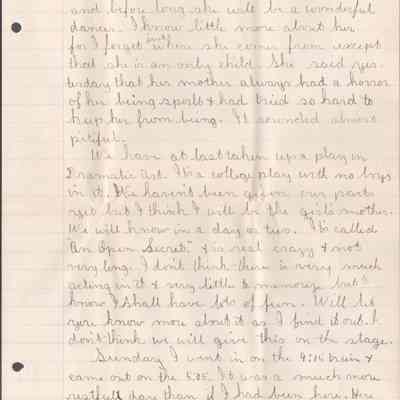 and before long she will be a wonderful
dancer. I know little more about her
for I forget just where she comes from except
that she is an only child. She said yes-
terday that her mother always had a horror
of her being spoilt & had tried so hard to
keep her from being. It sounded almost
pitiful.
We have at last taken up a play in
Dramatic Art. It's a college play with no boys
in it. We haven't been given our parts
yet but I think I will be the girl's mother.
We will know in a day or two. It's called
"An Open Secret" & is real crazy & not
very long. I don't think there is very much
acting in it & very little to memorize but I
know I shall have lots of fun. Will let
you know more about it as I find it out. I
don't think we will give this on the stage.
Sunday I went in on the 9:15 train &
came out on the 5:05. It was a much more
restfull day than if I had been here. Here